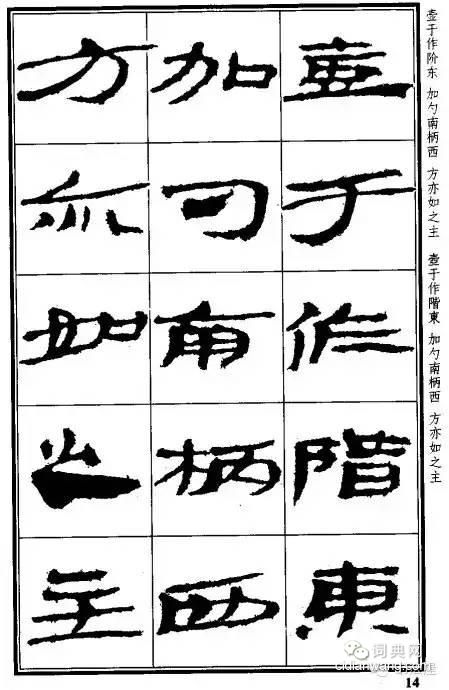 壺于作階東
加勺南柄西
方亦如之主
壺于作阶东 加勺南柄西 方亦如之主 壺于作階東 加勺南柄西 方亦如之主
14
词典网
cidianwang.com